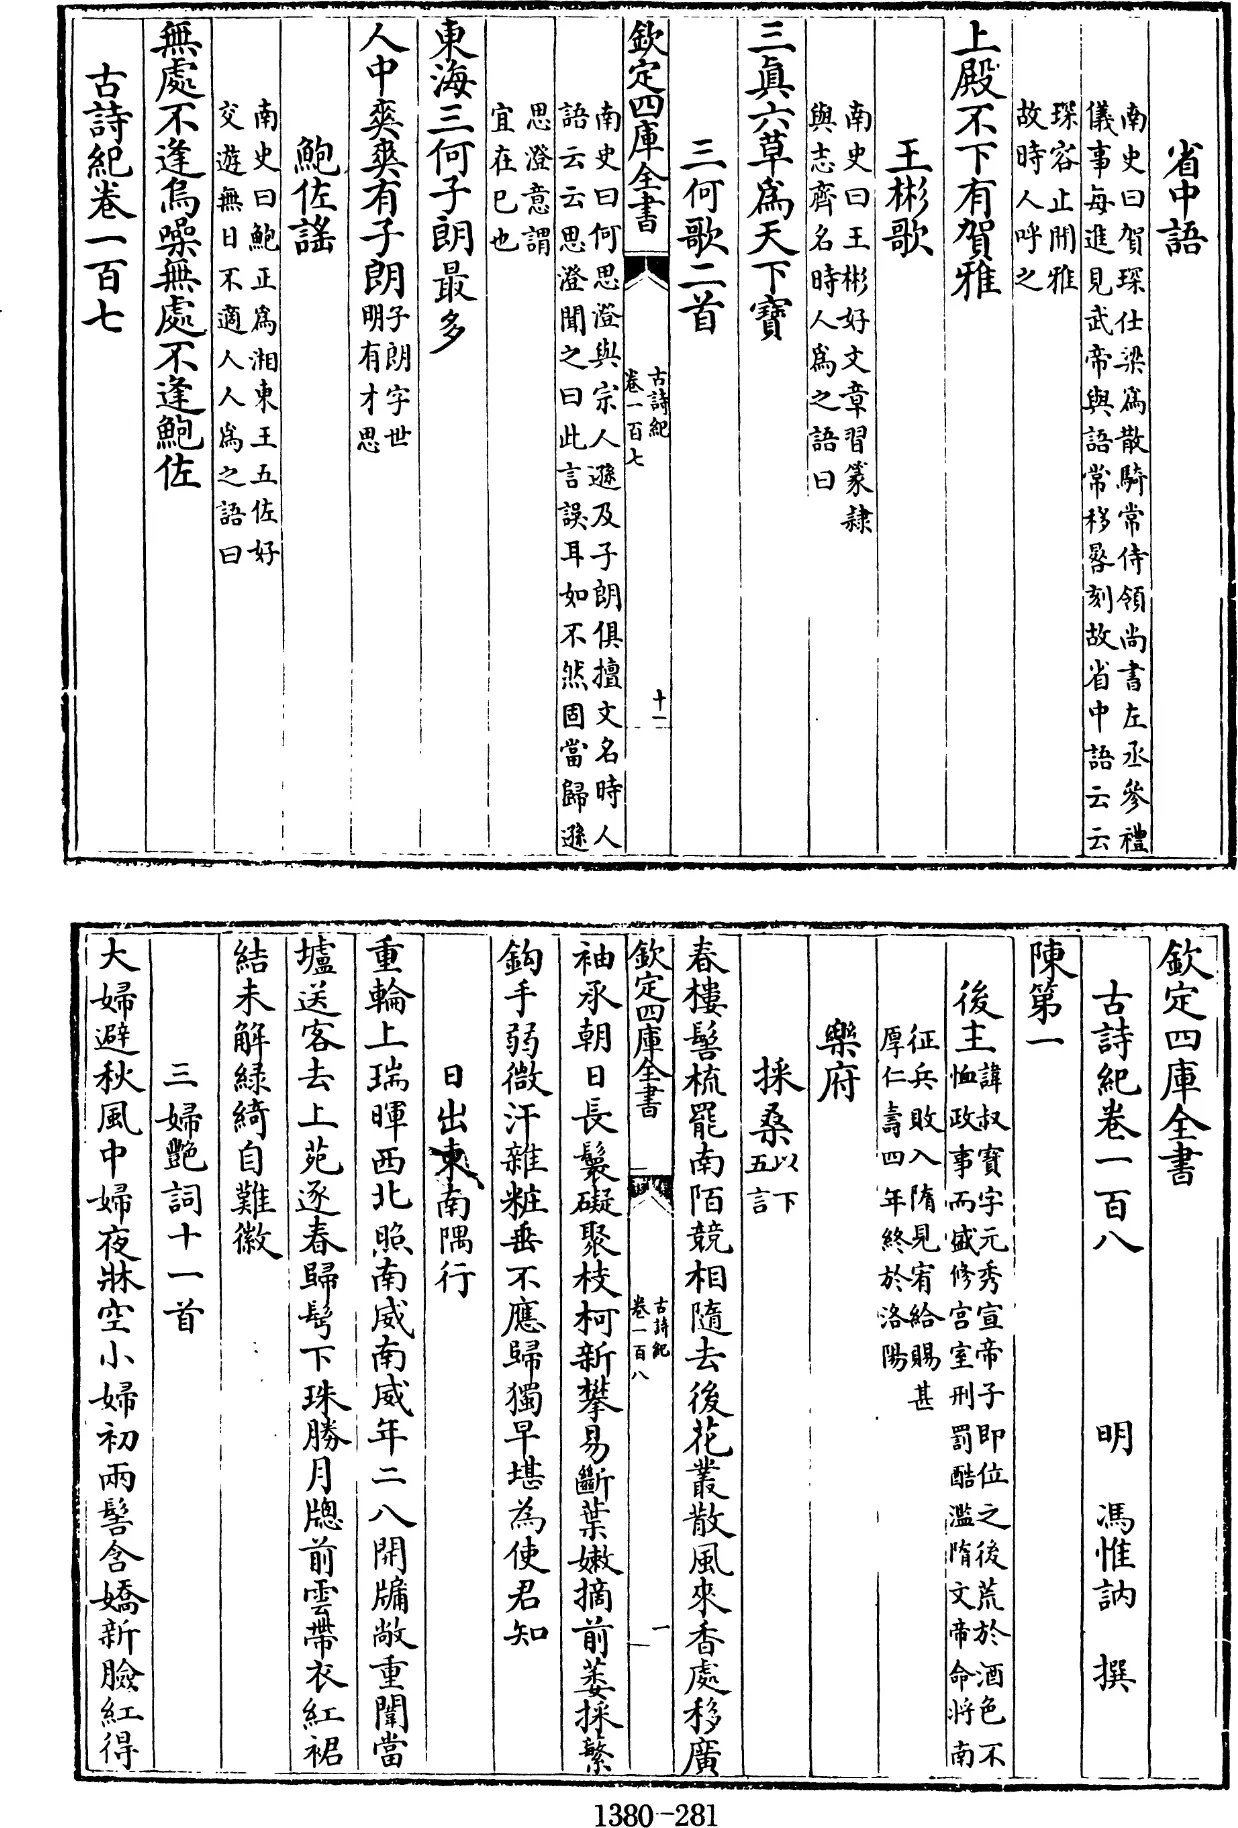 省中語
南史曰賀琛仕梁爲散騎常侍領尚書左丞參禮
儀事每進見武帝與語常移晷刻故省中語云云
琛容止閒雅
故時人呼之
上殿不下有賀雅
王彬歌
南史曰王彬好文章習篆隷
與志齊名時人爲之語曰
三眞六草爲天下寶
三何歌二首
欽定四庫全書
古詩紀
卷一百七
十一
南史曰何思澄與宗人遜及子朗俱擅文名時人
語云云思澄聞之曰此言誤耳如不然固當歸遜
思澄意謂
宜在已也
東海三何子朗最多
人中爽爽有子朗
子朗字世
明有才思
鮑佐謡
南史曰鮑正爲湘東王五佐好
交遊無日不適人人爲之語曰
無處不逢烏噪無處不逢鮑佐
古詩紀卷一百七
欽定四庫全書
古詩紀卷一百八
明 馮惟訥 撰
陳第一
後主
諱叔寶字元秀宣帝子即位之後荒於酒色不
恤政事而盛修宫室刑罰酷濫隋文帝命將南
征兵敗入隋見宥給賜甚
厚仁壽四年終於洛陽
樂府
採桑
以下
五言
春樓髻梳罷南陌競相隨去後花叢散風來香處移廣
欽定四庫全書
古詩紀
卷一百八
一
袖承朝日長鬟礙聚枝柯新攀易斷葉嫩摘前萎採繁
鈎手弱微汗雜粧垂不應歸獨早堪為使君知
日出東南隅行
重輪上瑞暉西北照南威南威年二八開牖敞重闈當
壚送客去上苑逐春歸髩下珠勝月牕前雲帶衣紅裙
結未解緑綺自難徽
三婦艷詞十一首
大婦避秋風中婦夜牀空小婦初兩髻含嬌新臉紅得
1380-281